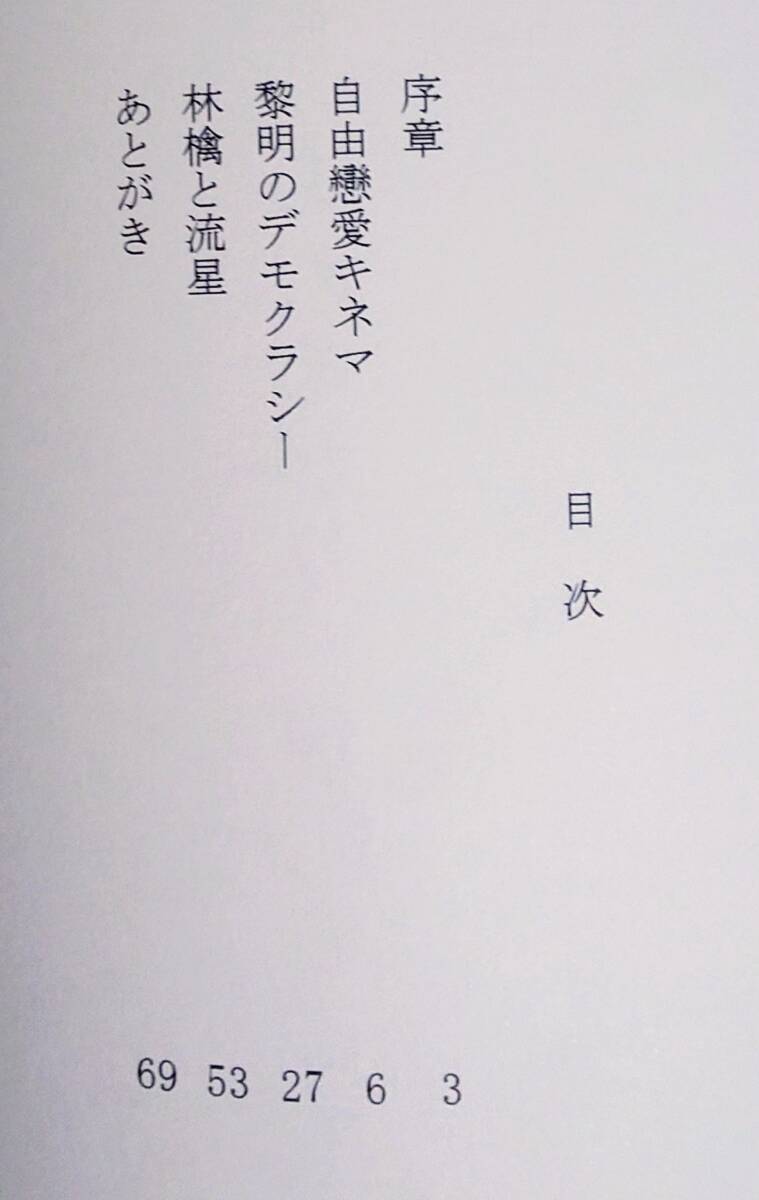 目次
序章 3
自由戀愛キネマ 6
黎明のデモクラシー 27
林檎と流星 53
あとがき 69